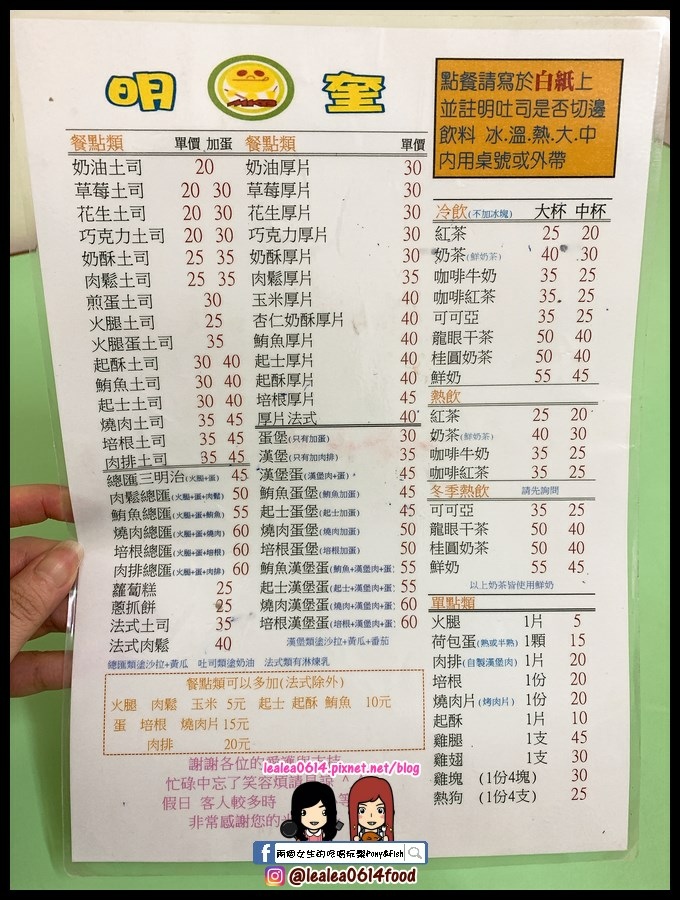 明奎
點餐請寫於白紙上
並註明吐司是否切邊
飲料 冰.溫.熱.大.中
內用桌號或外帶
餐點類 單價 加蛋
奶油土司 20
草莓土司 20 30
花生土司 20 30
巧克力土司 20 30
奶酥土司 25 35
肉鬆土司 25 35
煎蛋土司 30
火腿土司 25
火腿蛋土司 35
起酥土司 30 40
鮪魚土司 30 40
起士土司 30 40
燒肉土司 35 45
培根土司 35 45
肉排土司 35 45
總匯三明治(火腿+蛋) 45
肉鬆總匯(火腿+蛋+肉鬆) 50
鮪魚總匯(火腿+蛋+鮪魚) 55
燒肉總匯(火腿+蛋+燒肉) 60
培根總匯(火腿+蛋+培根) 60
肉排總匯(火腿+蛋+肉排) 60
蘿蔔糕 25
蔥抓餅 25
法式土司 35
法式肉鬆 40
餐點類 單價
奶油厚片 30
草莓厚片 30
花生厚片 30
巧克厚片 30
奶酥厚片 30
肉鬆厚片 35
玉米厚片 40
杏仁奶酥厚片 40
鮪魚厚片 40
起士厚片 40
起酥厚片 40
培根厚片 45
厚片法式 40
蛋堡(只有加蛋) 30
漢堡(只有加肉排) 35
漢堡蛋(漢堡肉+蛋) 45
鮪魚蛋堡(鮪魚加蛋) 45
起士蛋堡(起士加蛋) 45
燒肉蛋堡(燒肉加蛋) 50
培根蛋堡(培根加蛋) 50
鮪魚漢堡蛋(鮪魚+漢堡肉+蛋) 55
起士漢堡蛋(起士+漢堡肉+蛋) 55
燒肉漢堡蛋(燒肉+漢堡肉+蛋) 60
培根漢堡蛋(培根+漢堡肉+蛋) 60
漢堡類塗沙拉+黃瓜+番茄
總匯類塗沙拉+黃瓜 吐司類塗奶油 法式類有淋煉乳
餐點類可以多加(法式除外)
火腿 肉鬆 玉米 5元 起士 起酥 鮪魚 10元
蛋 培根 燒肉片15元
肉排 20元
冷飲(不加冰塊) 大杯 中杯
紅茶 25 20
奶茶(鮮奶茶) 40 30
咖啡牛奶 35 25
咖啡紅茶 35 25
可可亞 35 25
龍眼干茶 50 40
桂圓奶茶 50 40
鮮奶 55 45
熱飲
紅茶 25 20
奶茶(鮮奶茶) 40 30
咖啡牛奶 35 25
咖啡紅茶 35 25
冬季熱飲 請先詢問
可可亞 35 25
龍眼干茶 50 40
桂圓奶茶 50 40
鮮奶 55 45
以上奶茶皆使用鮮奶
單點類
火腿 1片 5
荷包蛋(熟或半熟) 1顆 15
肉排(自製漢堡肉) 1片 20
培根 1份 20
燒肉片(烤肉片) 1份 20
起酥 1片 10
雞腿 1支 45
雞翅 1支 30
雞塊 (1份4塊) 30
熱狗 (1份4支) 25
謝謝各位的
忙碌中忘了笑容煩請見諒 ^_^
假日 客人較多時
非常感謝您的
lealea0614.pixnet.net/blog
兩個女生的吃喝玩樂Pony&Fish
@lealea0614food